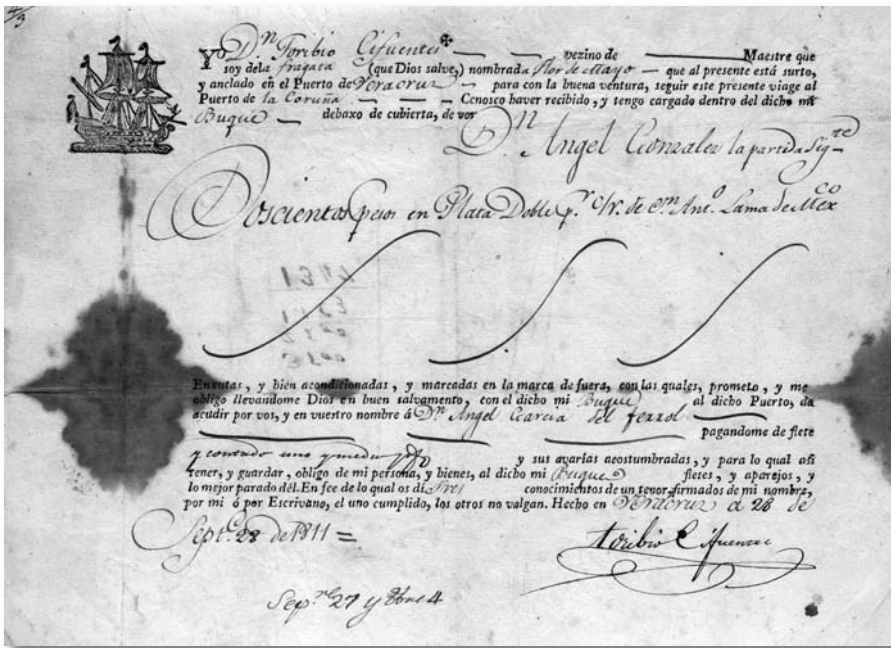 Yo Dn Toribio Cifuentes vezino de Maestre que
soy dela fragata (que Dios salve,) nombrada Flor de Mayo — que al presente está surto,
y anclado en el Puerto de Veracruz — para con la buena ventura, seguir este presente viage al
Puerto de la Coruña — — — Conosco haver recibido, y tengo cargado dentro del dicho mi
Buque — debaxo de cubierta, de vos
Dn Angel Gonzalez la partida Sigte
Doscientos pesos en Plata Doble pr c/r. de Dn Anto. Lama de Mexco
1811
Enxutas, y bien acondicionadas, y marcadas en la marca de fuera, con las quales, prometo, y me
obligo llevandome Dios en buen salvamento, con el dicho mi Buque al dicho Puerto, de
acudir por vos, y en vuestro nombre á Dn Angel Garcia del ferrol
pagandome de flete
y contado uno y medio
y sus avarías acostumbradas, y para lo qual asi
tener, y guardar, obligo de mi persona, y bienes, al dicho mi Buque fletes, y aparejos, y
lo mejor parado dél. En fee de lo qual os dí Tres conocimientos de un tenor, firmados de mi nombre,
por mi ó por Escrivano, el uno cumplido, los otros no valgan. Hecho en Veracruz a 28 de
Septe. 28 de 1811 =
Toribio Cifuentes
Sepre 27 y 8bre 4